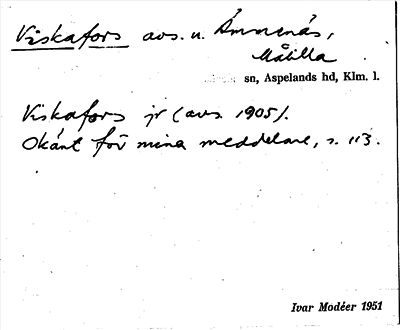 Viskafors avs. u. Ämmenäs,
Målilla
sn, Aspelands hd, Klm. l.
Viskafors jr (avs. 1905).
Okänt för mina meddelare, s. 113.
Ivar Modéer 1951